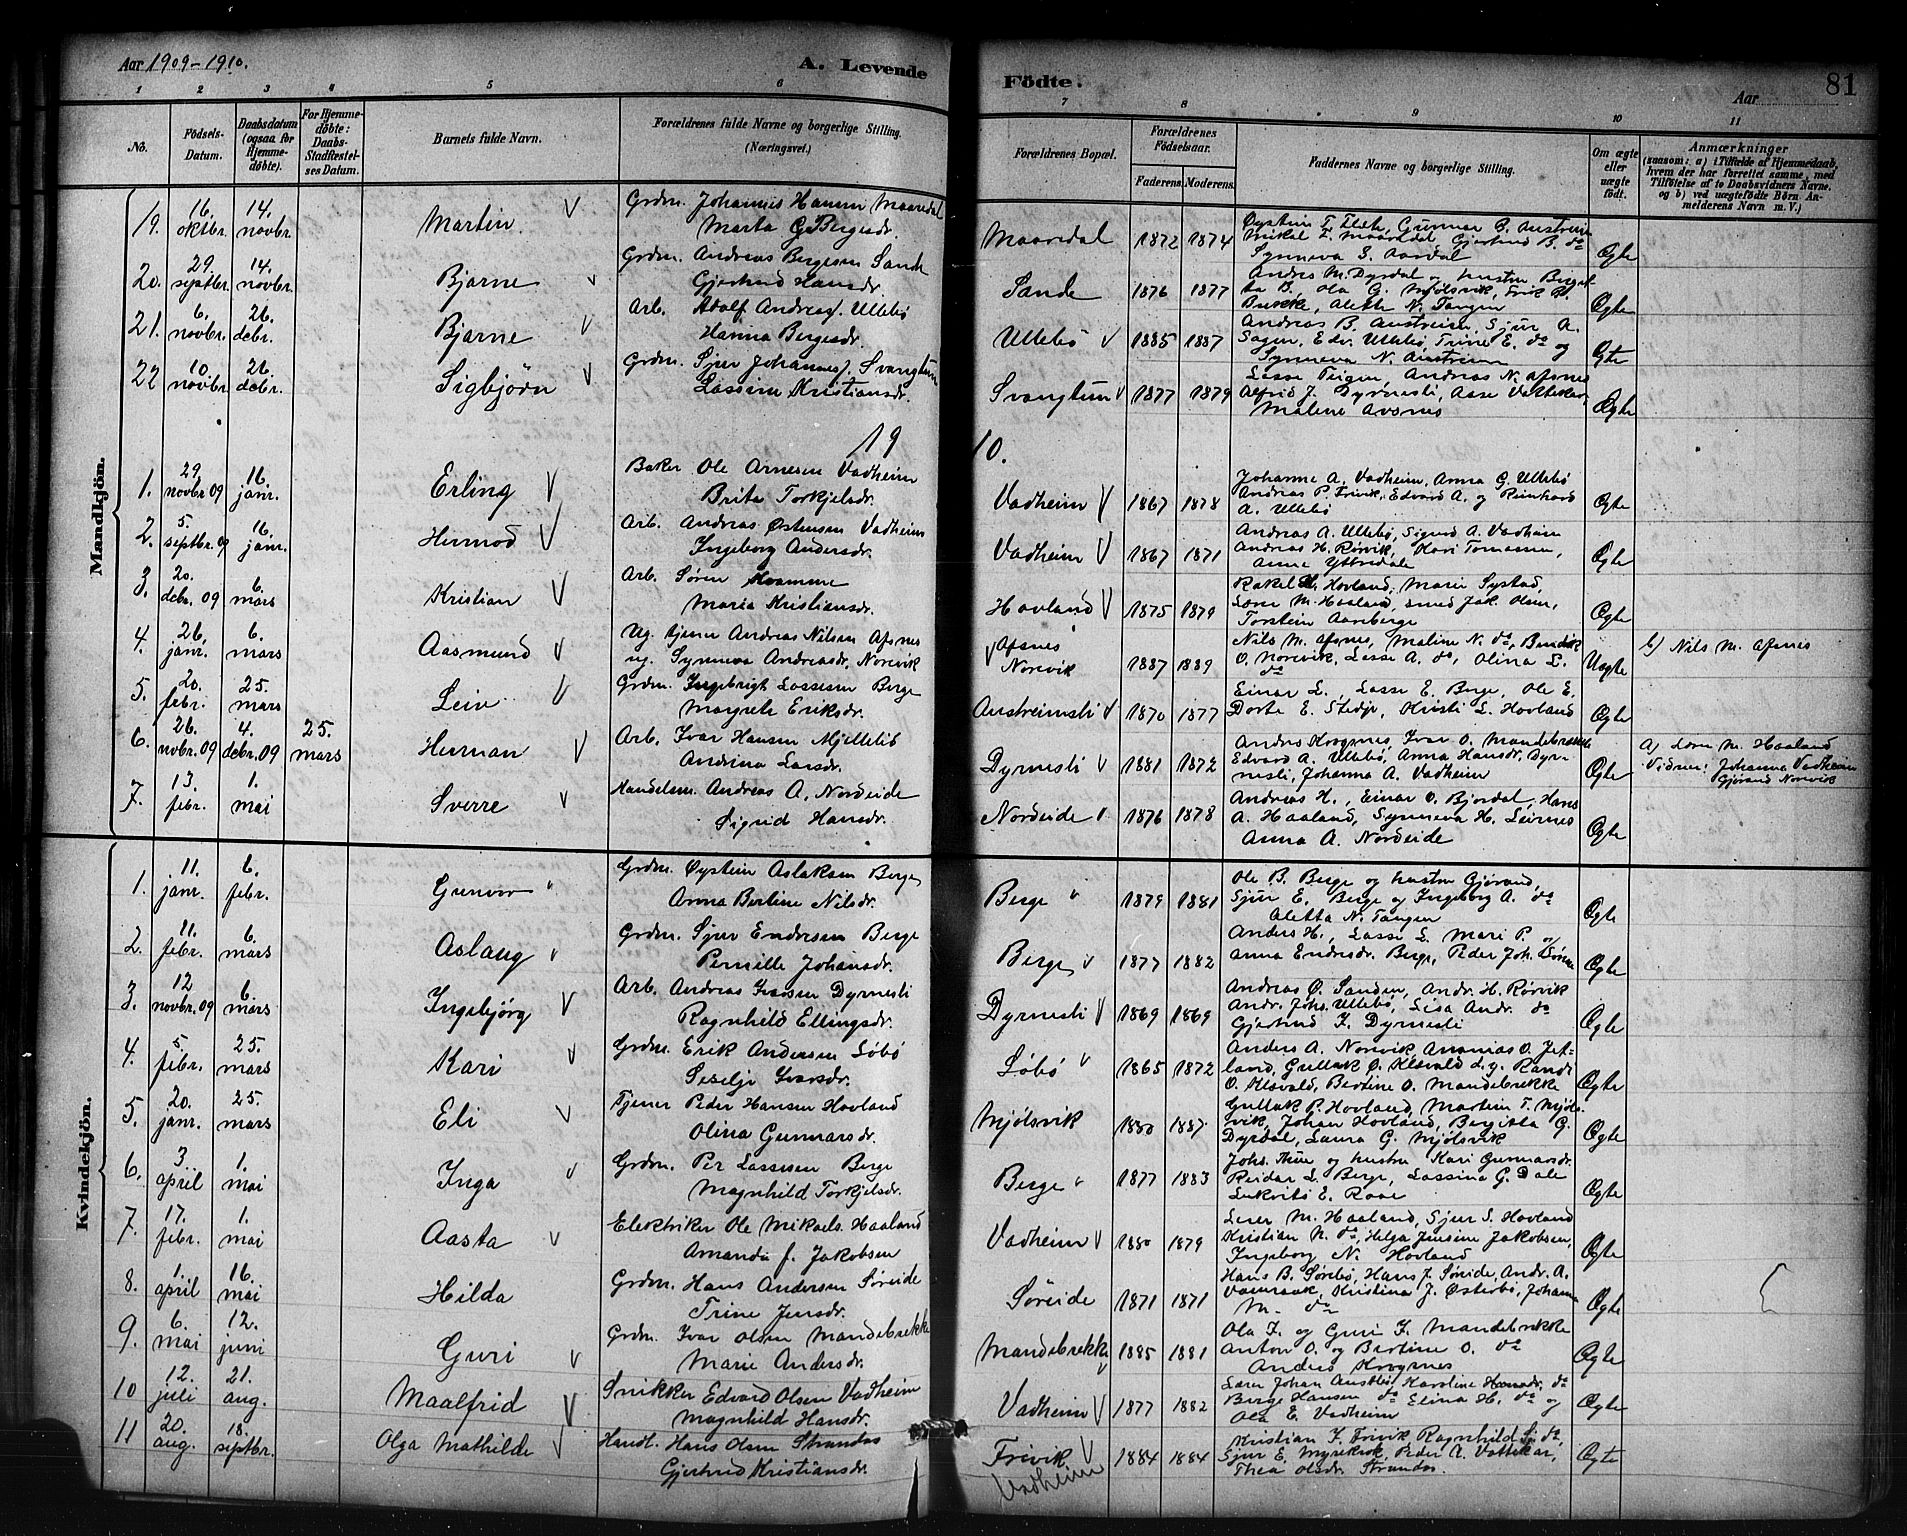 Aar 1909-1910.
A. Levende Födte.
81
Aar
1 2 3 4 5 6 7 8 9 10 11
No.
Födsels-Datum.
Daabsdatum (ogsaa for Hjemme-døbte).
For Hjemme-døbte: Daabs-Stadfæstel-ses Datum.
Barnets fulde Navn.
Forældrenes fulde Navne og borgerlige Stilling. (Næringsvei.)
Forældrenes Bopæl.
Forældrenes Födselsaar.
Faderens. Moderens.
Faddernes Navne og borgerlige Stilling.
Om ægte eller uægte født.
Anmærkninger
(saasom: a) i Tilfælde af Hjemmedaab, hvem der har forrettet samme, med Tilföielse af to Daabsvidners Navne, og b) ved uægtefödte Börn Anmelderens Navn m. V.)
Mandkjön.
19. 16. oktbr. 14. novbr. Martin Grdm. Johannes Hansen Maaredal
Marta G. Bergesdr. Maaredal 1872 1874 Øystein T. Flete, Gunnar B. Austreim
Mikal I. Maaredal, Gjertrud B. do
Synneva S. Aardal Ægte
20. 29. septbr. 14. novbr. Bjarne Grdm. Andreas Bergesen Sande
Gjertrud Hansdr. Sande 1876 1877 Andres M. Dyrdal og hustru Bergit-
ta B., Ola G. Mjølsvik, Erik B.
Bukke, Alette N. Tangen Ægte
21. 6. novbr. 26. debr. Bjarne Arb. Adolf Andreas f. Ullebø
Hanna Bergesdr. Ullebø 1885 1887 Andreas B. Austreim, Sjur A.
Sagen, Edv. Ullebø, Trine E. do og
Synneva N. Austreim Ægte
22 10. novbr. 26. debr. Sigbjörn Grdm. Sjur Johannes f. Svangtun
Lassine Kristiansdr. Svangtun 1877 1879 Lasse Teigen, Andreas N. Afsnes
Alfred J. Dyrnesli, Aase Vattekar,
Malene Avsnes Ægte
1910.
1. 29 novbr 09 16. janr. Erling Baker Ole Arnesen Vadheim
Brita Torkjelsdr. Vadheim 1867 1878 Johanne A. Vadheim, Anna G. Ullebø
Andreas P. Frivik, Edvard A. og Reinhard
A. Ullebø Ægte
2. 5. septbr. 09 16. janr. Hermod Arb. Andreas Østensen Vadheim
Ingeborg Andersdr. Vadheim 1867 1871 Andreas A. Ullebø, Sigurd A. Vadheim
Andreas H. Rørvik, Kari Tomassen,
Anne Yttredale Ægte
3. 20. debr. 09 6. mars Kristian Arb. Sören Kvamme
Maria Kristiansdr. Hovland 1875 1879 Rakel Hovland, Marie Systad,
Lærer M. Haaland, smed Jak. Olsen,
Torstein Aarberge Ægte
4. 26. janr. 6. mars Aasmund Ug. tjener Andreas Nilsen Afsnes
ug. Synneva Andreasdr. Norevik Afsnes Norevik 1887 1889 Nils M. Afsnes, Maline N. do, Bendik
O. Norevik, Lasse A. do, Olina L.
do Uægte b) Nils M. Afsnes
5. 20. febr. 25. mars Leiv Grdm. Ingebrigt Lassesen Berge
Margrete Eriksdr. Austreimsli 1870 1877 Einar L., Lasse E. Berge, Ole E.
Dorte E. Stedje, Kristi L. Hovland Ægte
6. 26. novbr. 09 4. debr. 09 25. mars Herman Arb. Ivar Hansen Mjellebø
Andrina Larsdr. Dyrnesli 1881 1872 Anders Krogsnes, Ivar O. Mandebrekke
Edvard A. Ullebø, Anna Hansdr. Dyr-
nesli, Johanna A. Vadheim Ægte a) Lærer M. Haaland
Vidner: Johanna Vadheim
Gjørand Norevik
7. 13. febr. 1. mai Sverre Handelsm. Andreas A. Nordeide
Sigrid Hansdr. Nordeide 1876 1878 Andreas H., Einar O. Bjordal, Hans
A. Haaland, Synneva H. Leirnes
Anna A. Nordeide Ægte
Kvindekjön.
1. 11. janr. 6. febr. Gunvor Grdm. Øystein Aslaksen Berge
Anna Bertine Nilsdr. Berge 1879 1881 Ole B. Berge og hustru Gjørand,
Sjur E. Berge og Ingeborg A. do
Aletta N. Tangen Ægte
2. 11. febr. 6. mars Aslaug Grdm. Sjur Endresen Berge
Pernille Johansdr. Berge 1877 1882 Anders H., Lasse L. Mari P. og
Anna Endresdr. Berge, Peder Joh. Bønne Ægte
3. 12 novbr. 09 6. mars Ingebjörg Arb. Andreas Ivarsen Dyrnesli
Ragnhild Ellingsdr. Dyrnesli 1869 1869 Andreas Ø. Sanden, Andr. H. Rørvik
Andr. Johs. Ullebø, Lisa Andr. do
Gjertrud I. Dyrnesli Ægte
4. 5. febr. 25. mars Kari Grdm. Erik Andersen Løbø
Seselje Ivarsdr. Løbø 1865 1872 Anders A. Norevik, Ananias O. Jet-
land, Gullak Ø. Klævold L.g. Randi
O. Klævold, Bertine O. Mandebrekke Ægte
5. 20. janr. 25. mars Eli Tjener Peder Hansen Hovland
Olina Gunnarsdr. Mjölsvik 1880 1887 Gullak P. Hovland, Martin T. Mjøls-
vik, Johan Hovland, Bergitta G.
Dyrdal, Laura G. Mjølsvik Ægte
6. 3 april 1. mai Inga Grdm. Per Lassesen Berge
Magnhild Torkjelsdr. Berge 1877 1883 Johs. Thue og hustru Kari Gunnarsdr.
Reidar L. Berge, Lassina G. Dale
Lukvits E. Raae Ægte
7. 17. febr. 1. mai Aasta Elektriker Ole Mikaels. Haaland
Amanda f. Jakobsen Vadheim 1880 1879 Lærer M. Haaland, Sjur S. Hovland
Kristian N. do, Helga Jensine Jakobsen,
Ingeborg N. Hovland Ægte
8. 1. april 16. mai Hilda Grdm. Hans Andersen Søreide
Trine Jensdr. Søreide 1871 1871 Hans B. Sørebø, Hans J. Søreide, Andr. A.
Vamraak, Kristina J. Østerbø, Johanna
M. do Ægte
9. 6. mai 12. juni Guri Grdm. Ivar Olsen Mandebrekke
Marie Andersdr. Mandebrekke 1885 1881 Ola I. og Guri I. Mandebrekke
Anton O. og Bertine O. do
Anders Krogsnes Ægte
10 12. juli 21. aug. Maalfrid Snikker Edvard Olsen Vadheim
Magnhild Hansdr. Vadheim 1877 1882 Lærer Johan Austlø, Karoline Hansdr. do
Berge Hansen do Elina H. do og
Ola E. Vadheim Ægte
11 20. aug. 18. septbr. Olga Mathilde Handl. Hans Olsen Strandos
Gjertrud Kristiansdr. Frivik Vadheim 1884 1884 Kristian I. Frivik Ragnhild S. do,
Sjur E. Myreknok, Peder A. Vattekar,
Thea Olsdr. Strandos. Ægte